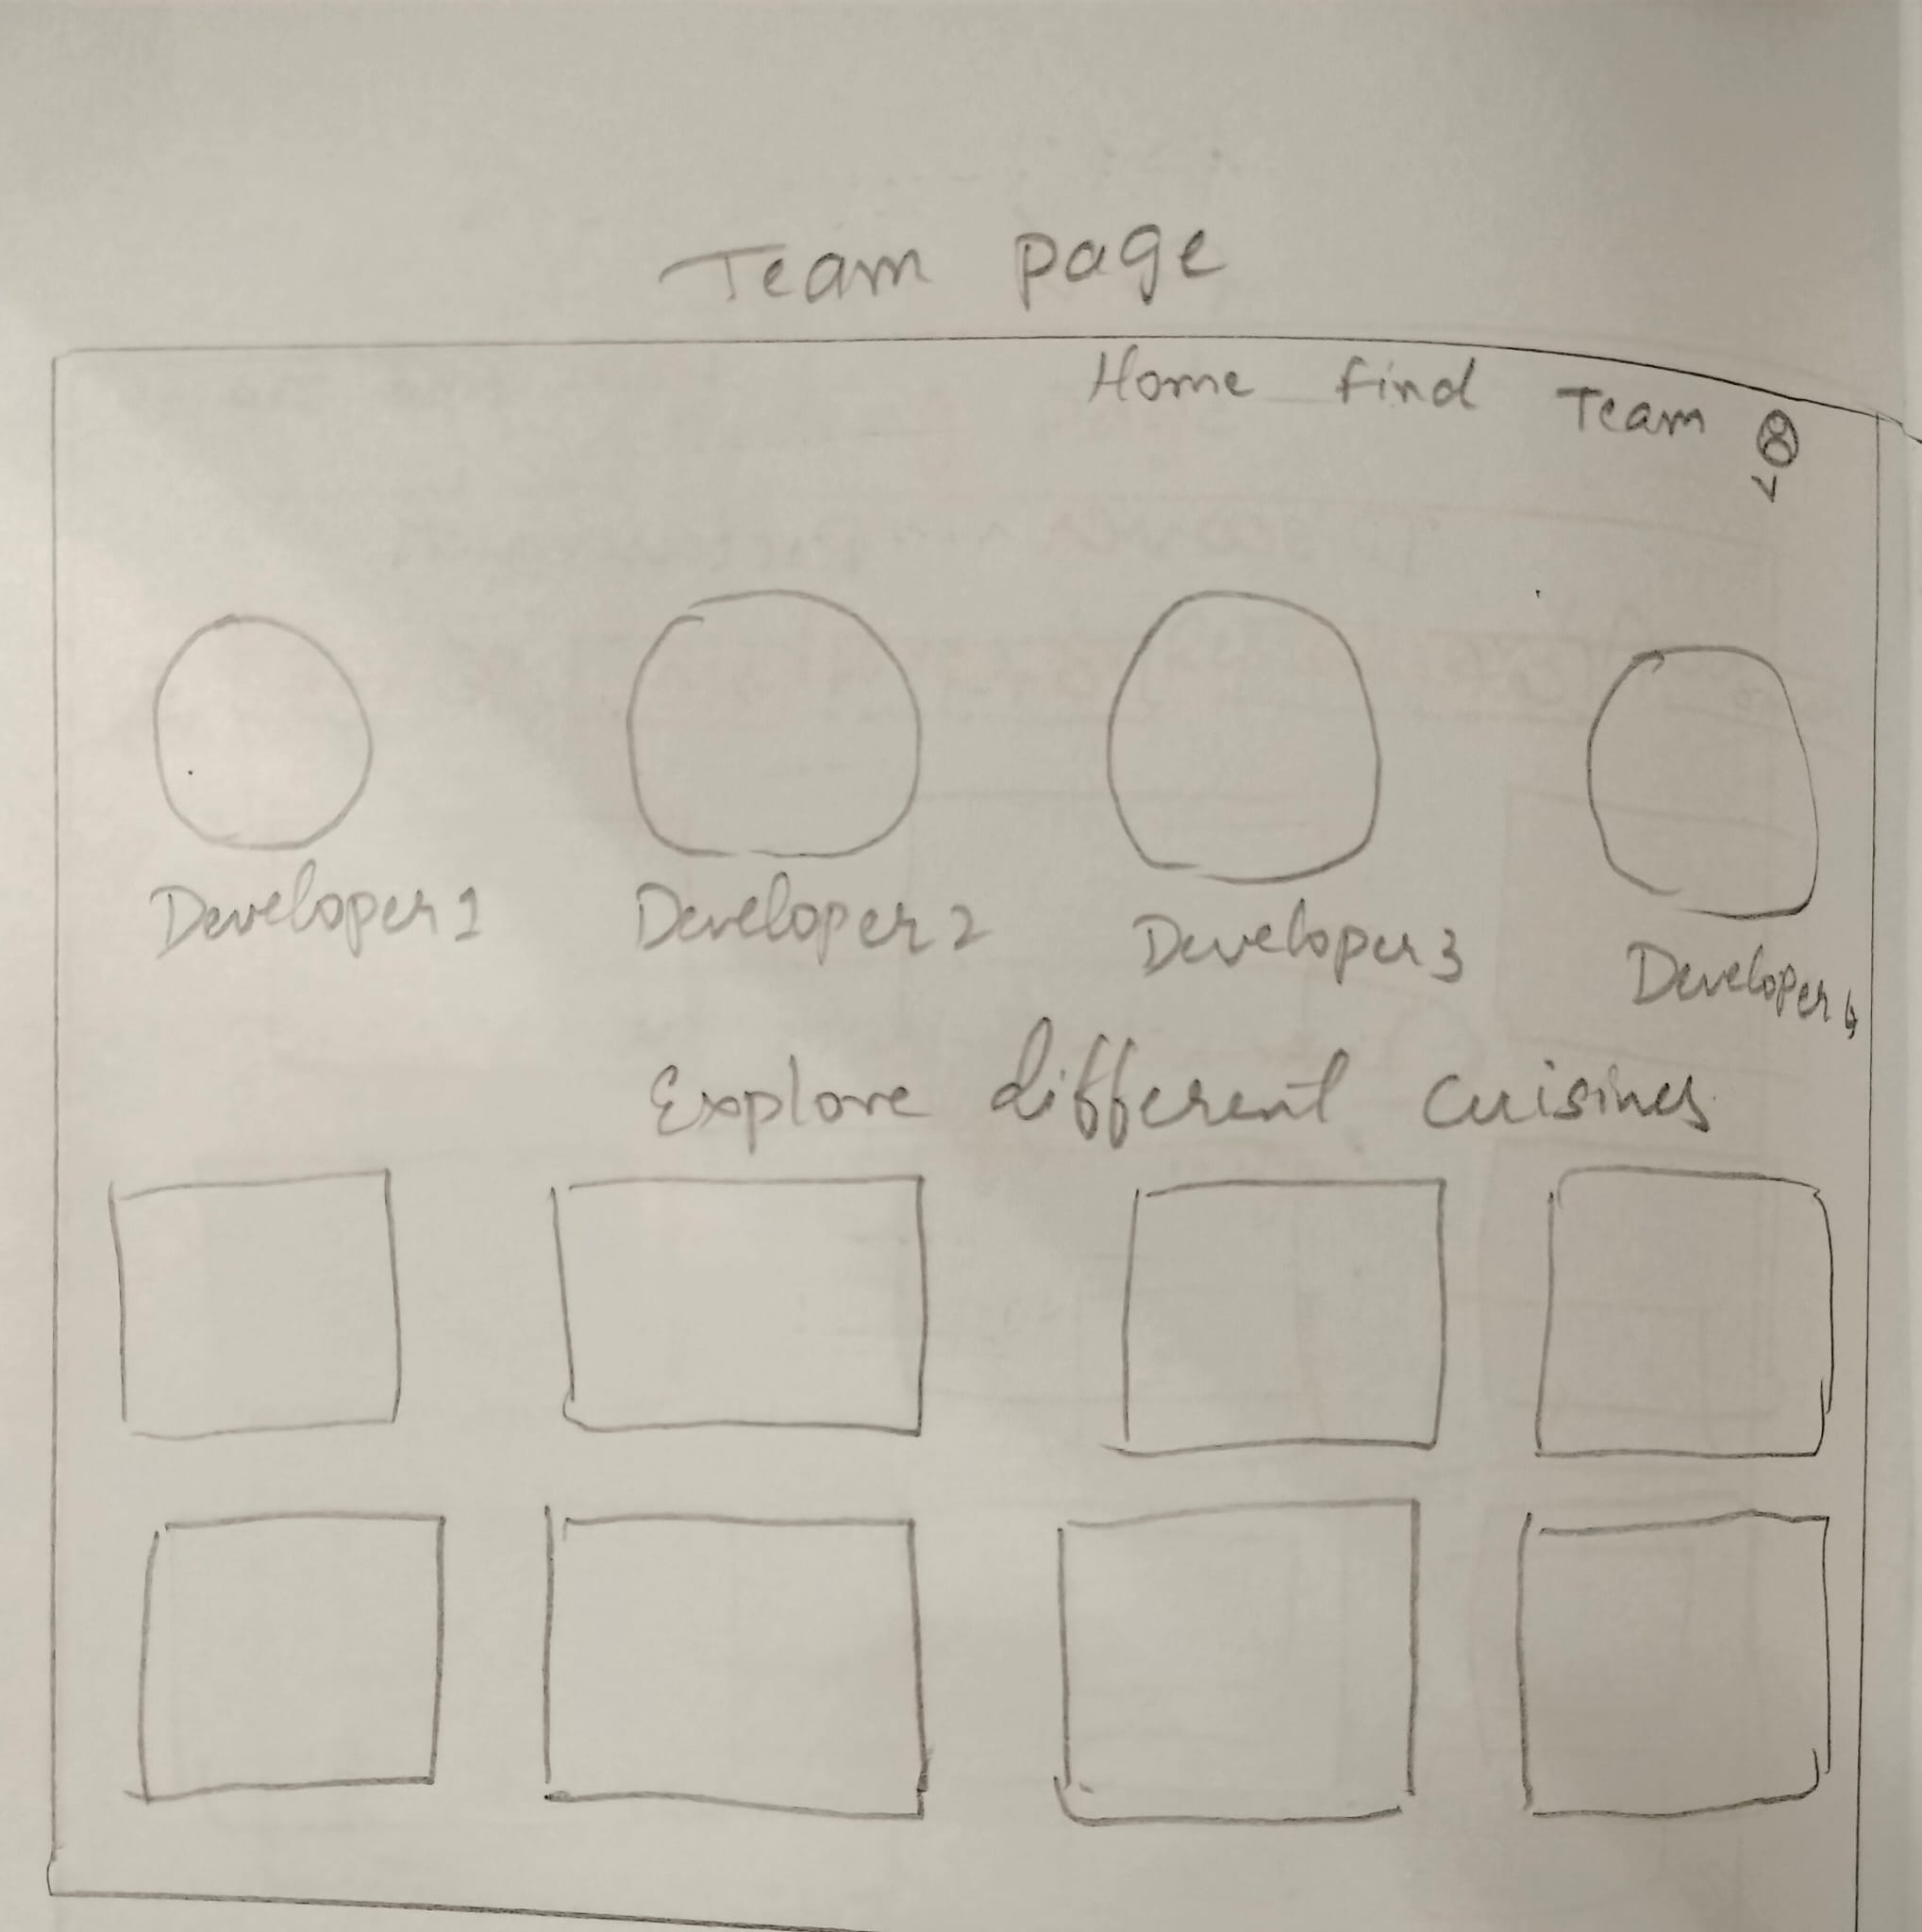 Team page
Home Find Team
Developer 1 Developer 2 Developer 3 Developer 4
Explore different cuisines